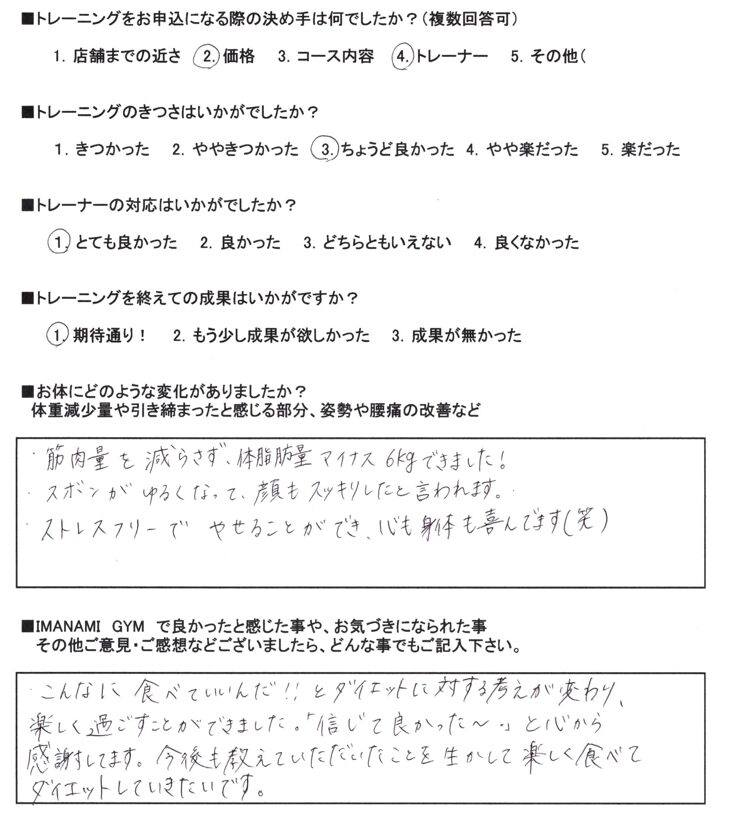 ■トレーニングをお申込になる際の決め手は何でしたか？（複数回答可）
1. 店舗までの近さ 2. 価格 3. コース内容 4. トレーナー 5. その他（
■トレーニングのきつさはいかがでしたか？
1. きつかった 2. ややきつかった 3. ちょうど良かった 4. やや楽だった 5. 楽だった
■トレーナーの対応はいかがでしたか？
1. とても良かった 2. 良かった 3. どちらともいえない 4. 良くなかった
■トレーニングを終えての成果はいかがですか？
1. 期待通り！ 2. もう少し成果が欲しかった 3. 成果が無かった
■お体にどのような変化がありましたか？
体重減少量や引き締まったと感じる部分、姿勢や腰痛の改善など
・筋肉量を減らさず、体脂肪量マイナス6kgできました！
・ズボンがゆるくなって、顔もスッキリしたと言われます。
・ストレスフリーでやせることができ、心も身体も喜んでます(笑)
■IMANAMI GYM で良かったと感じた事や、お気づきになられた事
その他ご意見・ご感想などございましたら、どんな事でもご記入下さい。
・こんなに食べていいんだ！！とダイエットに対する考えが変わり、
楽しく過ごすことができました。「信じて良かった〜。」と心から
感謝してます。今後も教えていただいたことを生かして楽しく食べて
ダイエットしていきたいです。